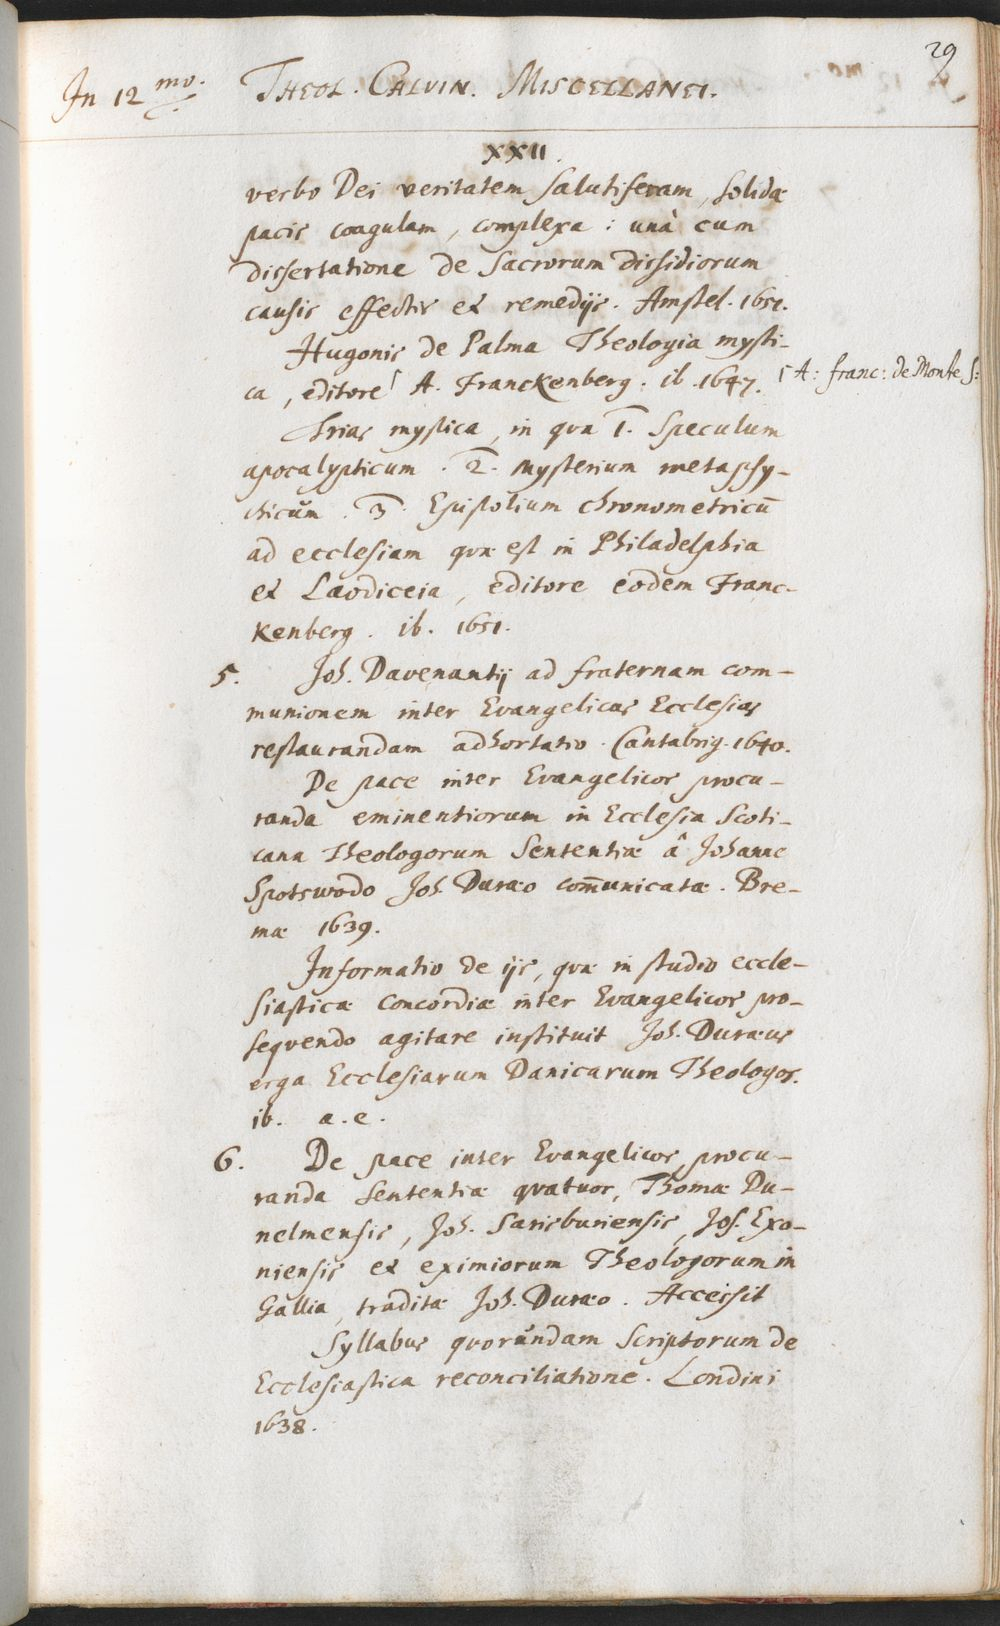 29
In 12 mo. THEOL. CALVIN. MISCELLANEI.
XXII.
verbo Dei veritatem salutiferam, solidæ
pacis coagulam, complexa: unà cum
dissertatione de Sacrorum dissidiorum
causis effectis et remedijs. Amstel. 1651.
Hugonis de Palma Theologia mysti-
ca, editore⌈ A. Franckenberg. ib. 1647. ⌈A: franc: de Monte S:
Trias mystica, in qva 1. Speculum
apocalypticum. 2. Mysterium metapsy-
chicum. 3. Epistolium chronometricū
ad ecclesiam qvæ est in Philadelphia
et Laodiceia, editore eodem Franc-
kenberg. ib. 1651.
5. Joh. Davenantij ad fraternam com-
munionem inter Evangelicas Ecclesias
restaurandam adhortatio. Cantabrig. 1640.
De pace inter Evangelicos procu-
randa eminentiorum in Ecclesia Scoti-
cana Theologorum Sententiæ â Johanne
Spotswodo Joh. Duræo com̄unicatæ. Bre-
mæ 1639.
Informatio de ijs, qvæ in studio eccle-
siasticæ Concordiæ inter Evangelicos pro-
seqvendo agitare instituit Joh. Duræus
erga Ecclesiarum Danicarum Theologos.
ib. a. e.
6. De pace inter Evangelicos procu-
randa sententiæ qvatuor, Thomæ Du-
nelmensis, Joh. Sarisburiensis, Jos. Exo-
niensis et eximiorum Theologorum in
Gallia, traditæ Joh. Duræo. Accessit
Syllabus qvorundam Scriptorum de
Ecclesiastica reconciliatione. Londini
1638.